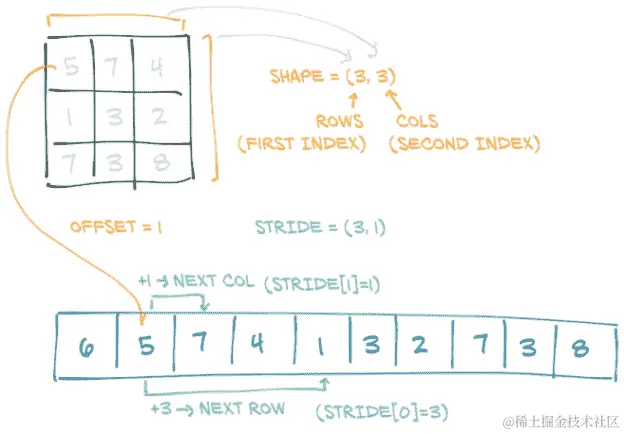 5 7 4
1 3 2
7 3 8
SHAPE = (3, 3)
ROWS COLS
(FIRST INDEX) (SECOND INDEX)
OFFSET = 1
STRIDE = (3, 1)
+1 → NEXT COL (STRIDE[1]=1)
6 5 7 4 1 3 2 7 3 8
+3 → NEXT ROW (STRIDE[0]=3)
@稀土掘金技术社区